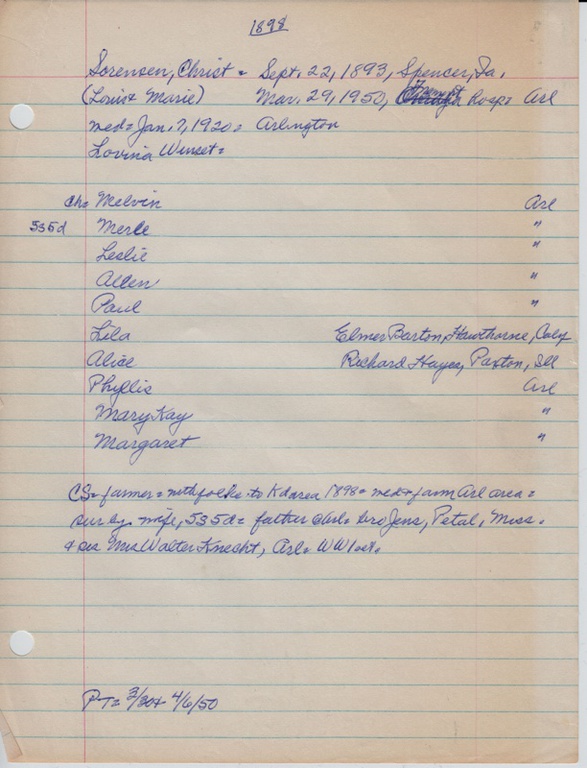 1898
Sorensen, Christ = Sept. 22, 1893, Spencer, Ia.
(Louis & Marie) Mar. 29, 1950, hosp = Arl
med = Jan. 7, 1920 = Arlington
Lovina Winset =
ch = Melvin Arl
5s5d Merle "
Leslie "
Allen "
Paul "
Lila Elmer Barton, Hawthorne, Calif
Alice Richard Hayes, Paxton, Ill
Phyllis Arl
Mary Kay "
Margaret "
CS = farmer = with folks to Kd area 1898 = med & farm Arl area =
sur by wife, 5s5d = father Arl = bro Jens, Petal, Miss.
& sis Mrs Walter Knecht, Arl = WW1 vet.
PT = 3/30 & 4/6/50